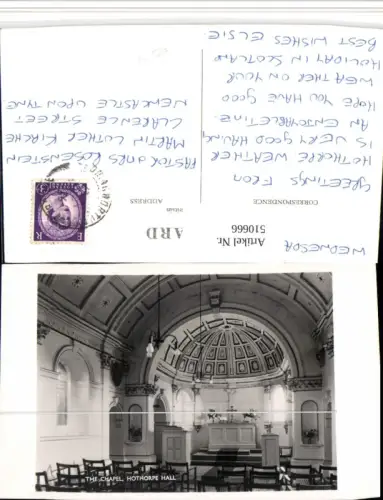 Artikel Nr.
510666
ARD
CORRESPONDENCE
ADDRESS
WEDNESDA
GREETINGS FROM
HOTHORPE WEATHER
IS VERY GOOD HAVING
AN ENJOYABLE TIME
HOPE YOU HAVE GOOD
WEATHER ON YOUR
HOLIDAY IN SCOTLAND
BEST WISHES ELSIE
PASTOR & MRS ROSENSTEIN
MARTIN LUTHER KIRCHE
CLARENCE STREET
NEWCASTLE UPON TYNE
THE CHAPEL, HOTHORPE HALL